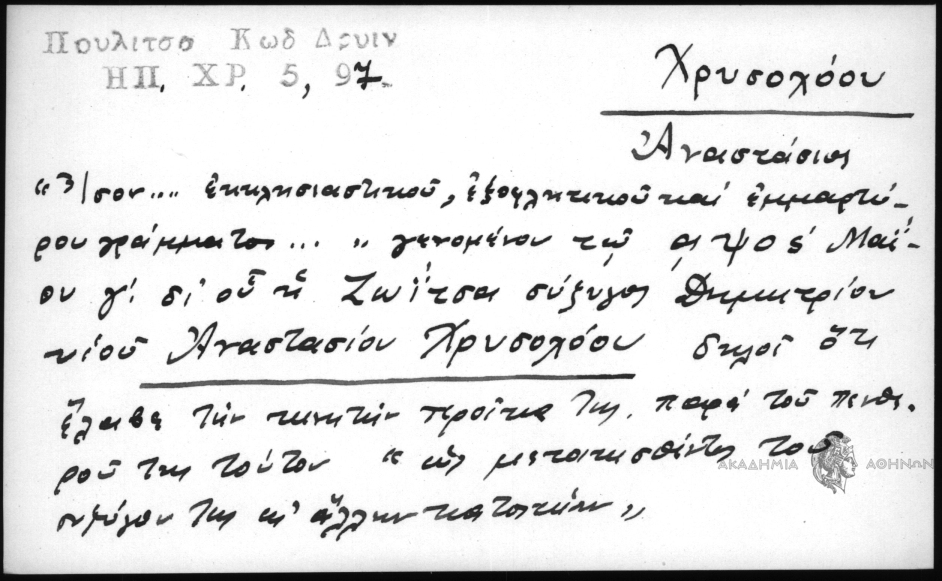 Πουλιτσα Κωδ Δρυιν
ΗΠ. ΧΡ. 5, 97.
Χρυσολόου
Ἀναστάσιος
"Ἴσον.... ἐκκλησιαστικοῦ, ἐξοφλητικοῦ καί ἐμμαρτύ-
ρου γράμματος... " γενομένου τῷ αψος Μαΐ-
ου γ. δι' οὗ ἡ Ζωΐτσα σύζυγος Δημητρίου
υἱοῦ Ἀναστασίου Χρυσολόου δηλοῖ ὅτι
ἔλαβε τήν κινητήν προῖκα της παρά τοῦ πενθε-
ροῦ της τούτου " ὡς μετατεσθέντος τοῦ
συζύγου της εἰς ἄλλην κατοικίαν"
ΑΚΑΔΗΜΙΑ ΑΘΗΝΩΝ